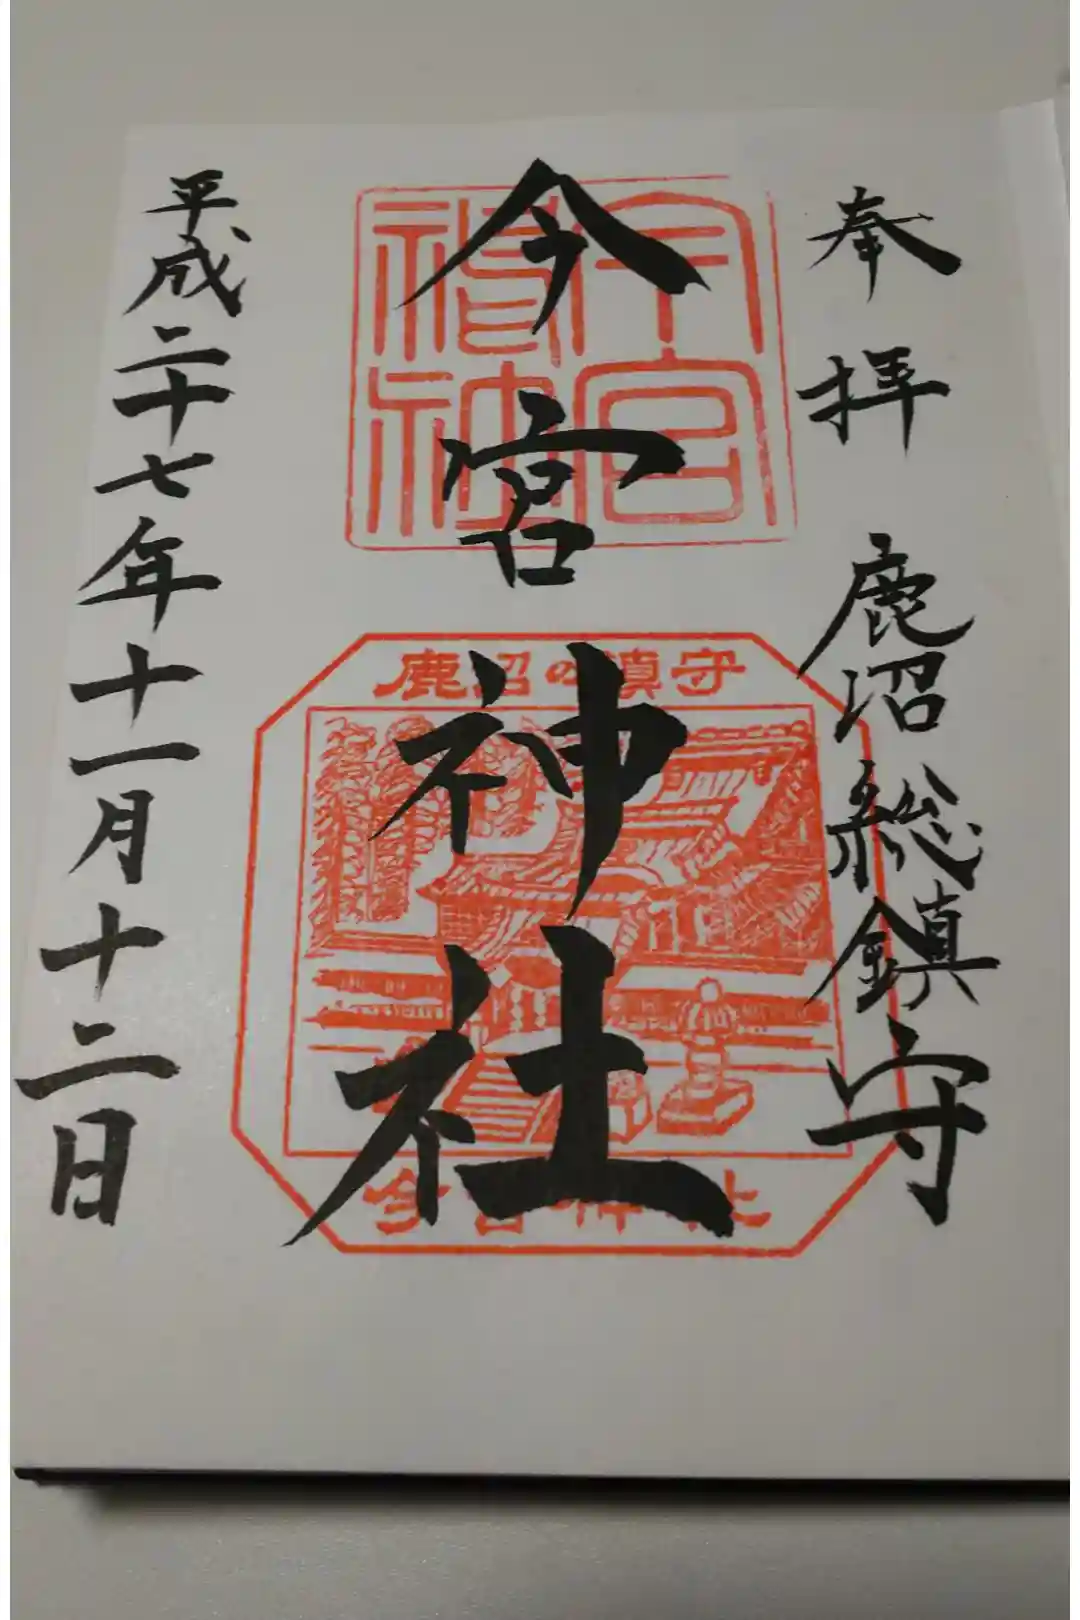 奉拝 鹿沼総鎮守
今宮神社
今宮神社
鹿沼の鎮守
今宮神社
平成二十七年十一月十二日